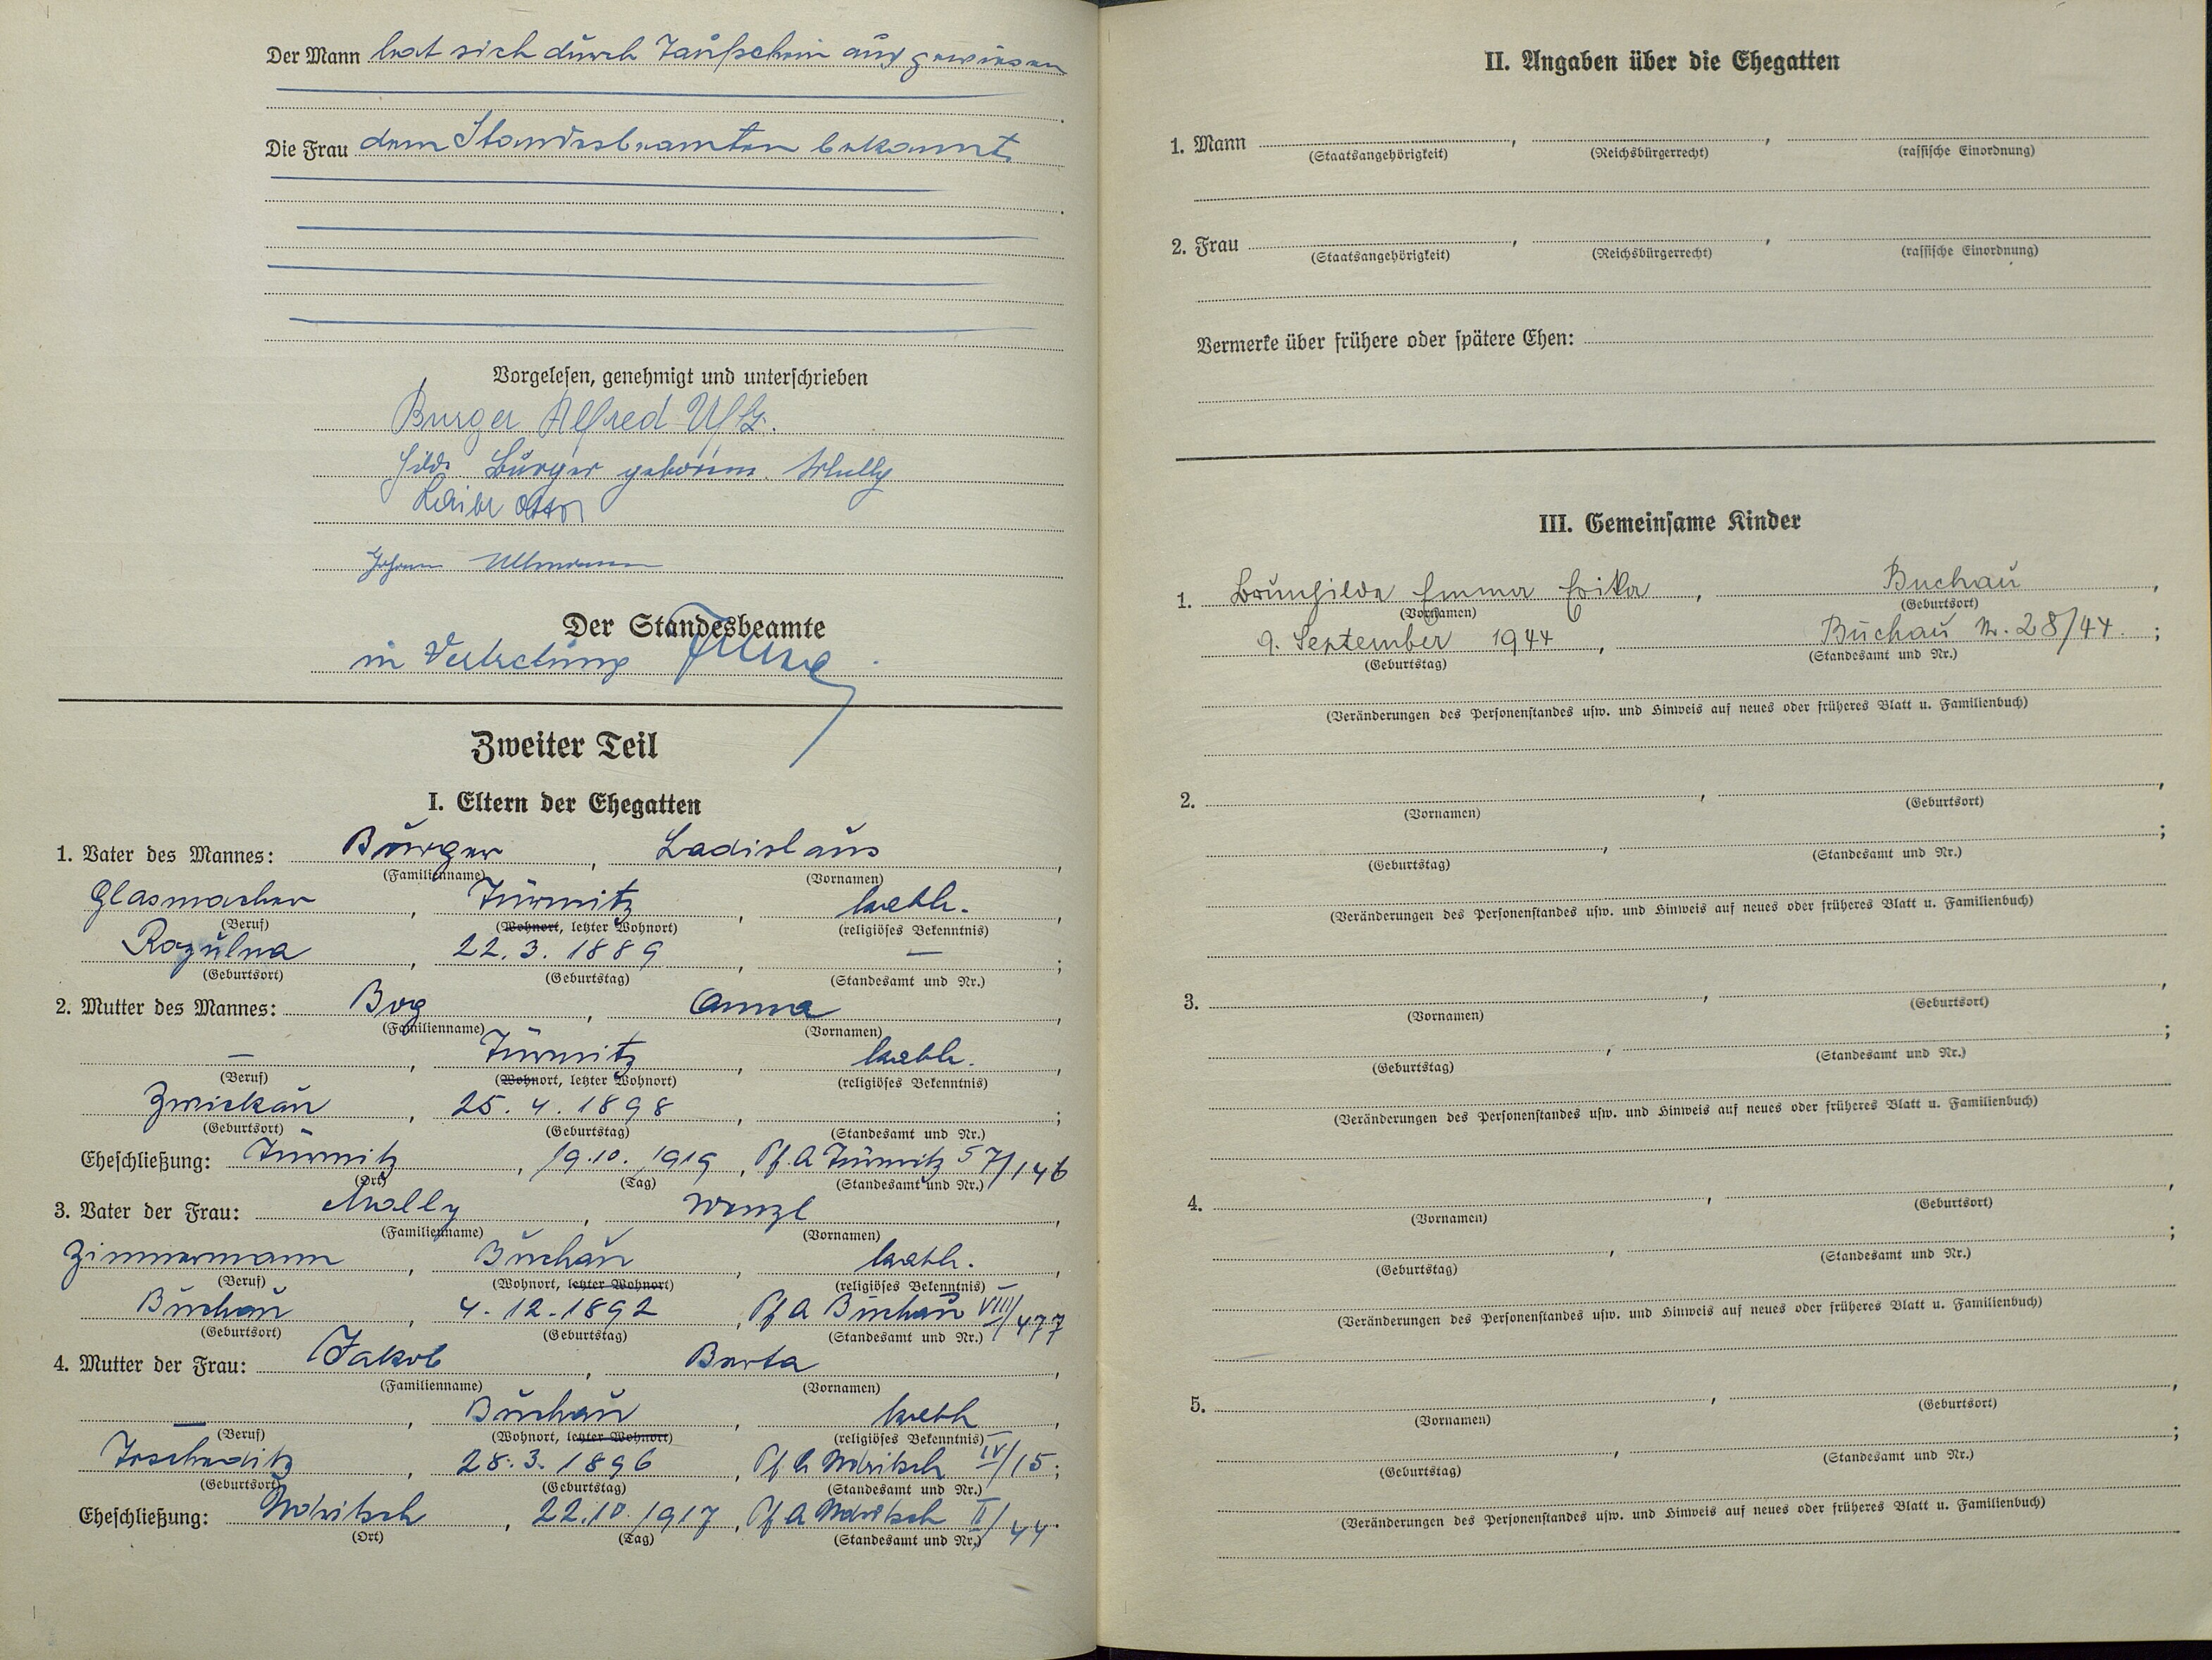 Der Mann hat sich durch Taufschein ausgewiesen
Die Frau dem Standesbeamten bekannt
Vorgelesen, genehmigt und unterschrieben
Burger Alfred Uffz.
Hilde Burger geborene
Otto
Johann Ullmann
Der Standesbeamte
in Vertretung
Zweiter Teil
I. Eltern der Ehegatten
1. Vater des Mannes: Burger, Ladislaus,
(Familienname) (Vornamen)
Glasmacher, Türmitz, kath.,
(Beruf) (Wohnort, letzter Wohnort) (religiöses Bekenntnis)
Rozulna, 22. 3. 1889, —;
(Geburtsort) (Geburtstag) (Standesamt und Nr.)
2. Mutter des Mannes: Bog, Anna,
(Familienname) (Vornamen)
—, Türmitz, kath.,
(Beruf) (Wohnort, letzter Wohnort) (religiöses Bekenntnis)
Zwickau, 25. 4. 1898,;
(Geburtsort) (Geburtstag) (Standesamt und Nr.)
Eheschließung: Türmitz, 19.10. 1919, Pf. A Türmitz 57/146
(Ort) (Tag) (Standesamt und Nr.)
3. Vater der Frau: Wenzl,
(Familienname) (Vornamen)
Zimmermann, Buchau, kath.,
(Beruf) (Wohnort, letzter Wohnort) (religiöses Bekenntnis)
Buchau, 4. 12. 1892, Pf A Buchau VIII/477
(Geburtsort) (Geburtstag) (Standesamt und Nr.)
4. Mutter der Frau: Jakob, Berta,
(Familienname) (Vornamen)
—, Buchau, kath,
(Beruf) (Wohnort, letzter Wohnort) (religiöses Bekenntnis)
Joschaditz, 28. 3. 1896, Pf A Woritsch IV/15;
(Geburtsort) (Geburtstag) (Standesamt und Nr.)
Eheschließung: Woritsch, 22.10. 1917, Pf A Woritsch II/44.
(Ort) (Tag) (Standesamt und Nr.)
II. Angaben über die Ehegatten
1. Mann
(Staatsangehörigkeit) (Reichsbürgerrecht) (rassische Einordnung)
2. Frau
(Staatsangehörigkeit) (Reichsbürgerrecht) (rassische Einordnung)
Vermerke über frühere oder spätere Ehen:
III. Gemeinsame Kinder
1. Brunhilde Emma Erika, Buchau,
(Vornamen) (Geburtsort)
9. September 1944, Buchau Nr. 28/44.;
(Geburtstag) (Standesamt und Nr.)
(Veränderungen des Personenstandes usw. und Hinweis auf neues oder früheres Blatt u. Familienbuch)
2.
(Vornamen) (Geburtsort)
(Geburtstag) (Standesamt und Nr.)
(Veränderungen des Personenstandes usw. und Hinweis auf neues oder früheres Blatt u. Familienbuch)
3.
(Vornamen) (Geburtsort)
(Geburtstag) (Standesamt und Nr.)
(Veränderungen des Personenstandes usw. und Hinweis auf neues oder früheres Blatt u. Familienbuch)
4.
(Vornamen) (Geburtsort)
(Geburtstag) (Standesamt und Nr.)
(Veränderungen des Personenstandes usw. und Hinweis auf neues oder früheres Blatt u. Familienbuch)
5.
(Vornamen) (Geburtsort)
(Geburtstag) (Standesamt und Nr.)
(Veränderungen des Personenstandes usw. und Hinweis auf neues oder früheres Blatt u. Familienbuch)